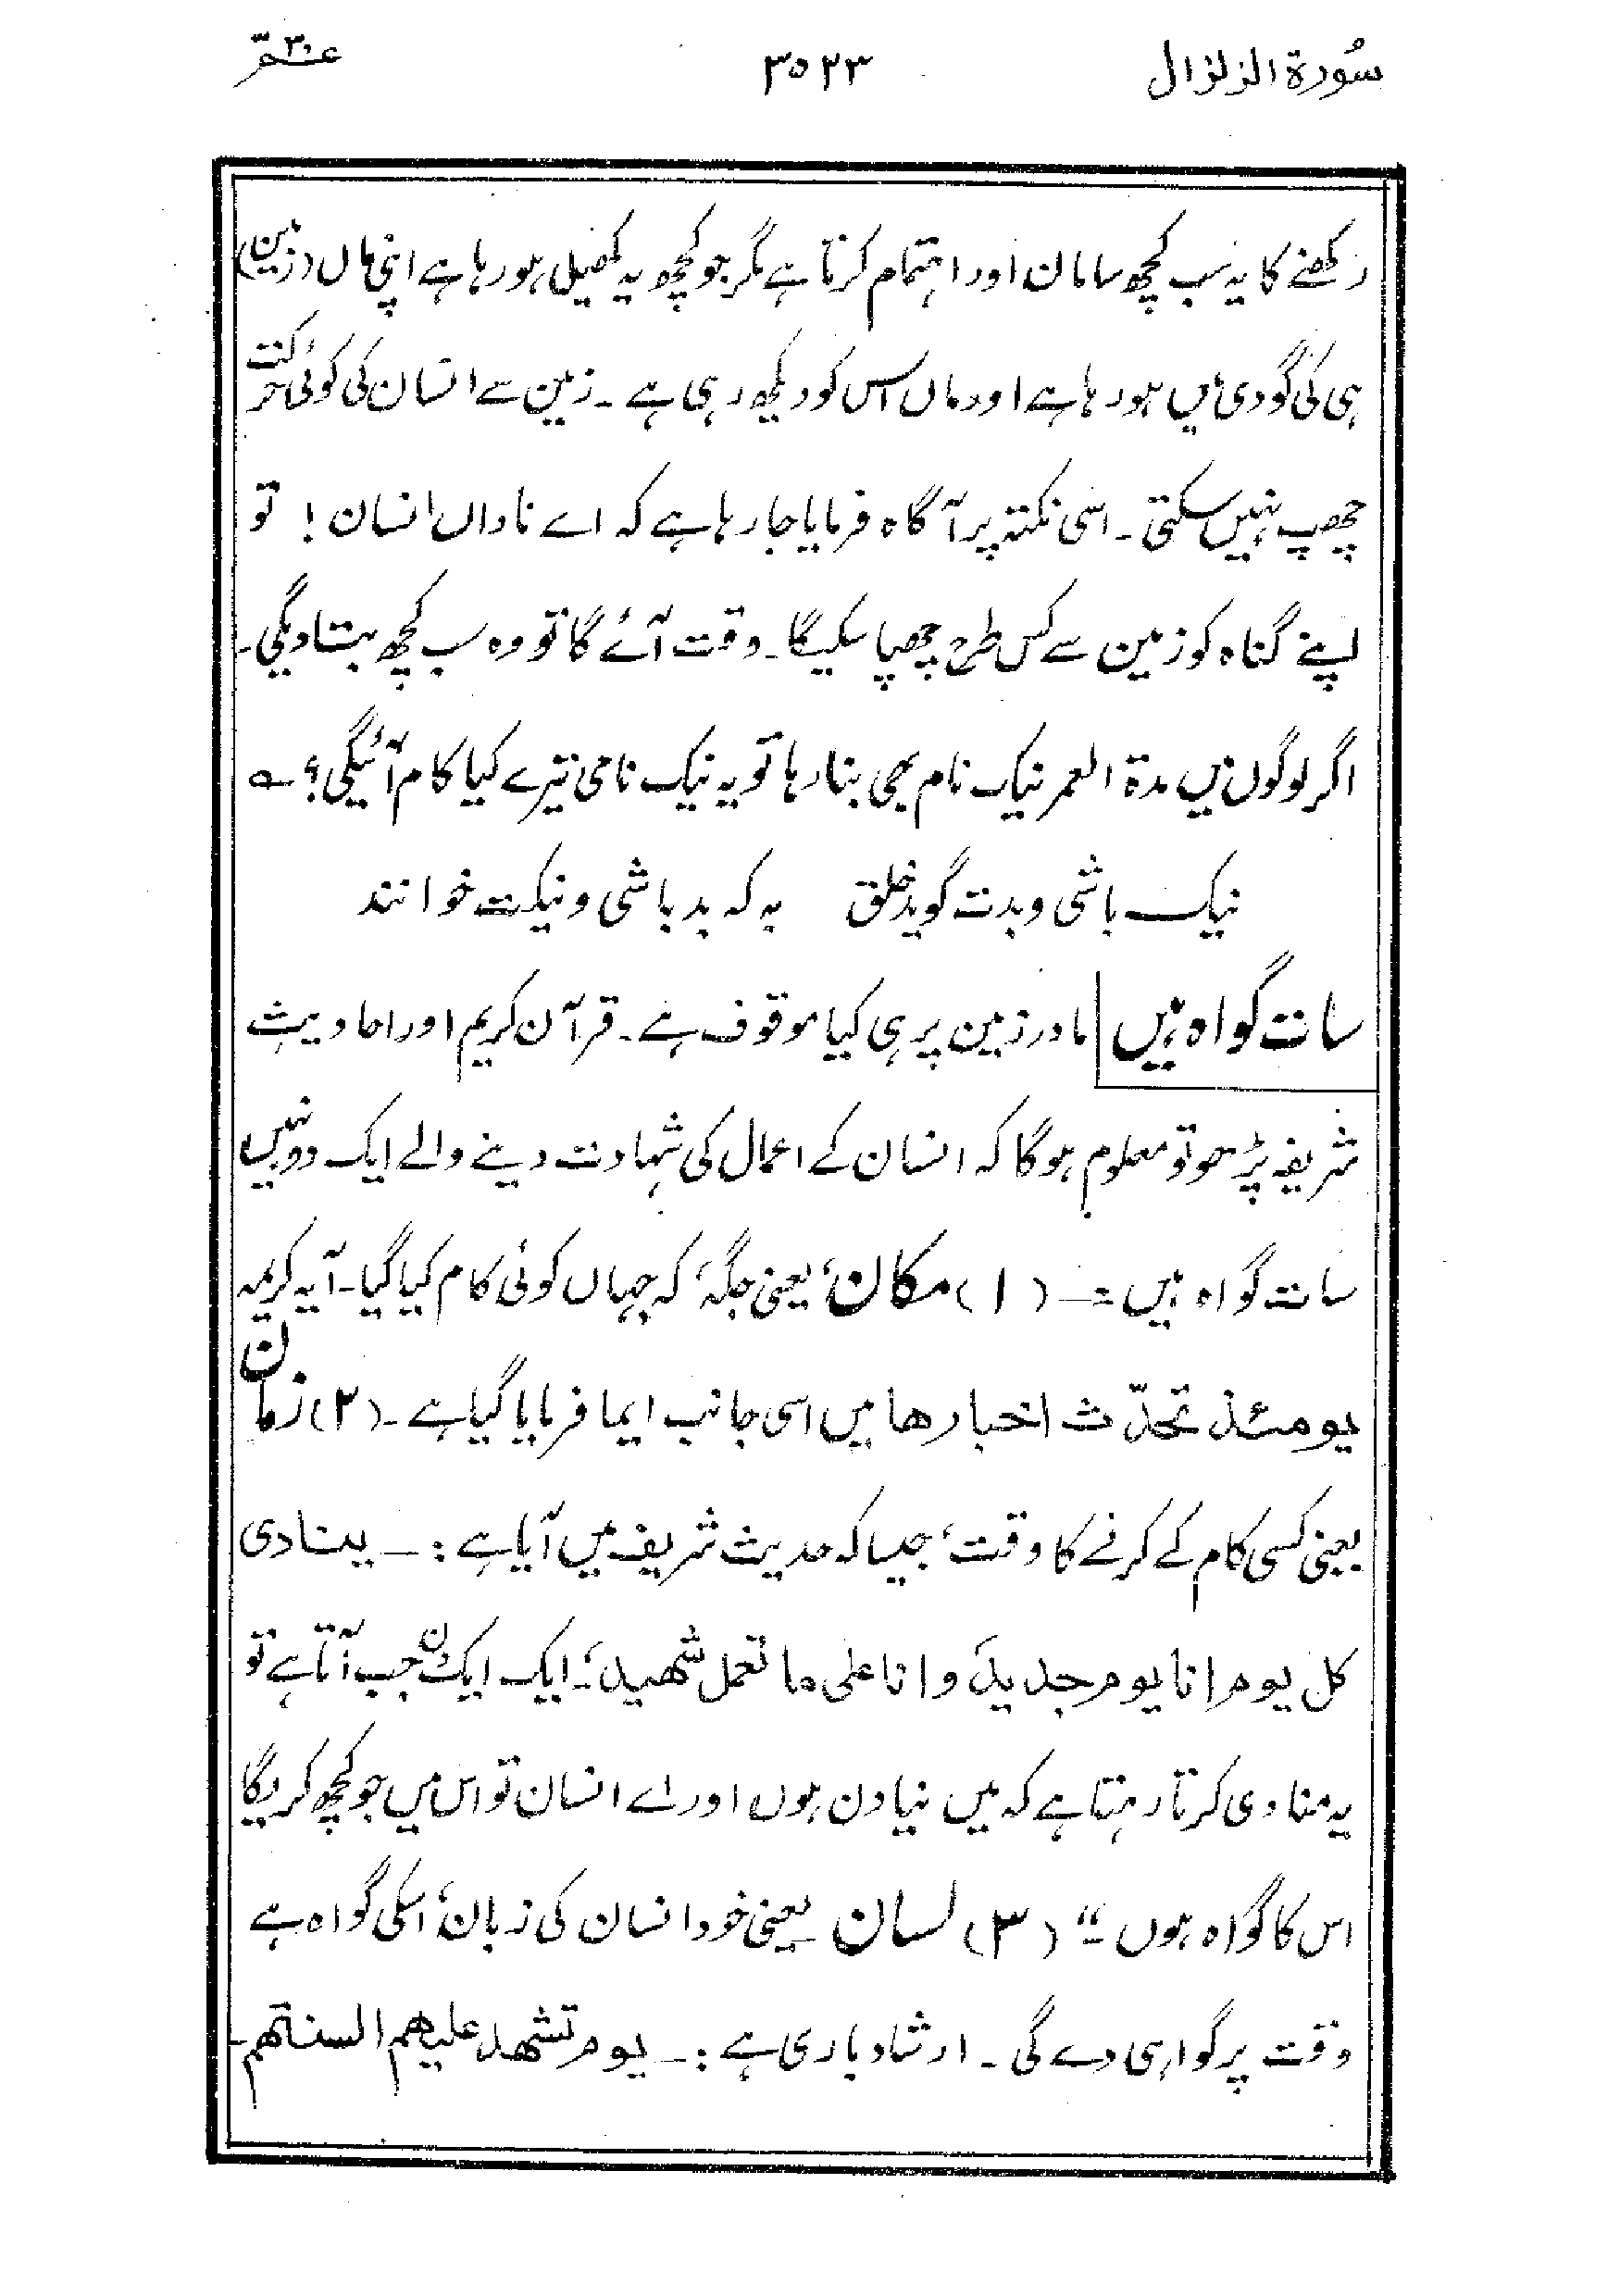 سُورۃ الزلزال
۳۵۲۳
عمّ ۳۰
رکھنے کا یہ سب کچھ سامان اور اہتمام کرتا ہے مگر جو کچھ یہ کھیل ہو رہا ہے اپنی ماں (زمین)
ہی کی گودی میں ہو رہا ہے اور ماں اس کو دیکھ رہی ہے ۔ زمین سے انسان کی کوئی حرکت
چھپ نہیں سکتی ۔ اسی نکتہ پر آگاہ فرمایا جا رہا ہے کہ اے ناداں انسان ! تو
اپنے گناہ کو زمین سے کس طرح چھپا سکیگا ۔ وقت آئے گا تو وہ سب کچھ بتا دیگی ۔
اگر لوگوں میں مدۃ العمر نیک نام بھی بنا رہا تو یہ نیک نامی تیرے کیا کام آئیگی؟ ؎
نیک باشی و بدت گوید خلق    بہ کہ بد باشی و نیکت خوانند
سات گواہ ہیں | مادر زمین پر ہی کیا موقوف ہے ۔ قرآن کریم اور احادیث
شریفہ پڑھو تو معلوم ہوگا کہ انسان کے اعمال کی شہادت دینے والے ایک دو نہیں
سات گواہ ہیں :- (۱) مکان، یعنی جگہ، کہ جہاں کوئی کام کیا گیا ۔ آیہ کریمہ
یومئذ تحدّث اخبارھا میں اسی جانب ایما فرمایا گیا ہے ۔ (۲) زمان
یعنی کسی کام کے کرنے کا وقت، جیسا کہ حدیث شریف میں آیا ہے :۔ ینادی
کل یوم انا یوم جدید و انا علی ما تعمل شھید، ایک ایک دن جب آتا ہے تو
یہ منادی کرتا رہتا ہے کہ میں نیا دن ہوں اور اے انسان تو اس میں جو کچھ کریگا
اس کا گواہ ہوں ۔" (۳) لسان یعنی خود انسان کی زبان، اسکی گواہ ہے
وقت پر گواہی دے گی ۔ ارشاد باری ہے :۔ یوم تشھد علیھم السنتھم ۔